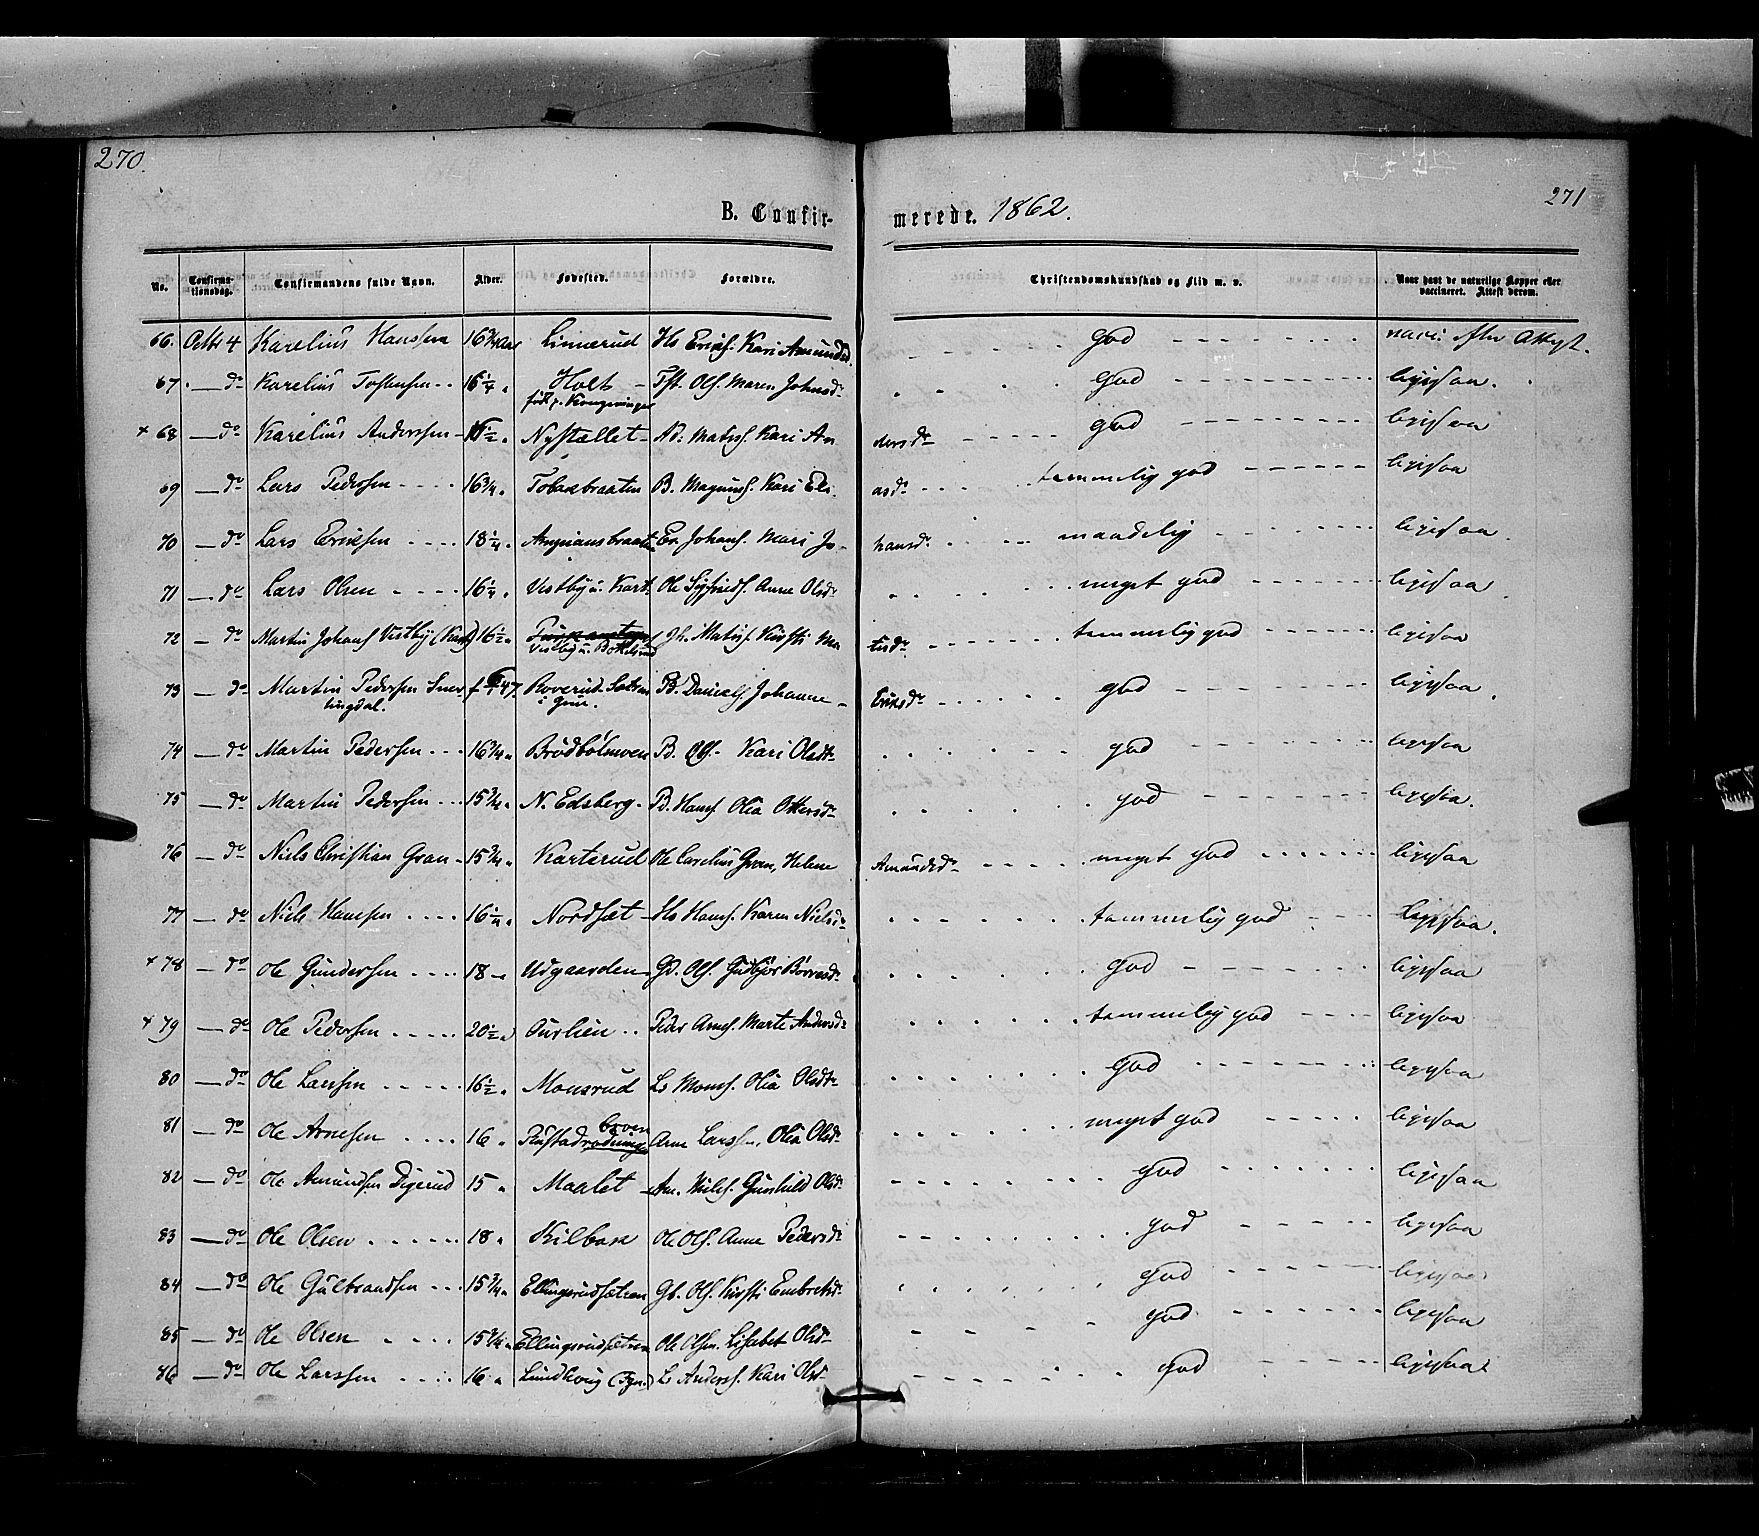 270.
271
B. Confir- merede. 1862.
No. Confirmationsdag. Confirmandens fulde Navn. Alder. Fødested. Forældre. Christendomskundskab og Flid m. v. Naar havt de naturlige Kopper eller vaccineret. Attest derom.
66. Octbr 4 Karelius Hanssen 16 3/4 Aar Linnerud Hs Erichs. Kari Amundsd. god vacc. Attest.
67. — do Karelius Tostensen 16 1/4 Holt Tst. Ols. Maren Johnsdr god ligesaa.
född p. Kongsvinger
+ 68 — do Karelius Anderssen Nystællet Ad. Matss. Kari An dersdr god ligesaa
69 — do Lars Pedersen 16 3/4 Tobaksbraaten P. Magnus. Kari Eli asdr temmelig god ligesaa
70 — do Lars Eriksen 18 1/4 Er. Johans. Mari Jo hansdr maadelig ligesaa
71 — do Lars Olsen 16 1/4 Vestby u. Kart. Ole Sigfrids. Anne Olsdr meget god ligesaa
72 — do Martin Johans. Vestby 16 1/2 Jh. Matis. Kirsti Ma tisdr temmelig god ligesaa
Vestby u.
73 — do Martin Pedersen Smer Roverud Sætren P. Daniels. Johanne Eriksdr god ligesaa
tingdal. i Grue.
74 — do Martin Pedersen 16 3/4 Brödbölmoen P. Ols. Kari Olsdtr god ligesaa
75 — do Martin Pedersen 15 3/4 N. Edsberg P. Hans. Olia Ottersdr god ligesaa.
76 — do Niels Christian Gran 15 3/4 Karterud Ole Carelius Gran, Helene Amundsdr meget god ligesaa
77 — do Niels Hanssen 16 1/4 Nordsæt Hs Hans. Karen Nielsdr temmelig god ligesaa.
+ 78 — do Ole Gundersen 18 Udgaarden Gd. Ols. Gudbjør Börresdr god ligesaa
+ 79 — do Ole Pedersen 20 1/2 Aurlien Peder Arnes. Marte Andersdr temmelig god ligesaa
80 — do Ole Larssen 16 1/2 Monsrud Ls Mons. Olia Olsdtr god ligesaa
81 — do Ole Arnesen 16 Rustadrödningen Arne Larssen, Olia Olsdr meget god ligesaa
82 — do Ole Amundsen Digerud 15 Maalet Am. Niels. Gunhild Olsdr god ligesaa
83 — do Ole Olsen 18 Kilbak Ole Ols. Anne Pedersdr god ligesaa
84 — do Ole Gulbrandsen 15 3/4 Ellingsrudsætren Gb. Ols. Kirsti Embretsdr god ligesaa
85 — do Ole Olsen 15 3/4 Ellingsrudsætren Ole Olsen. Lisabet Olsdr god ligesaa
86 — do Ole Larssen 16 Lundkvig Ls Anderss. Kari Olsdr god ligesaa